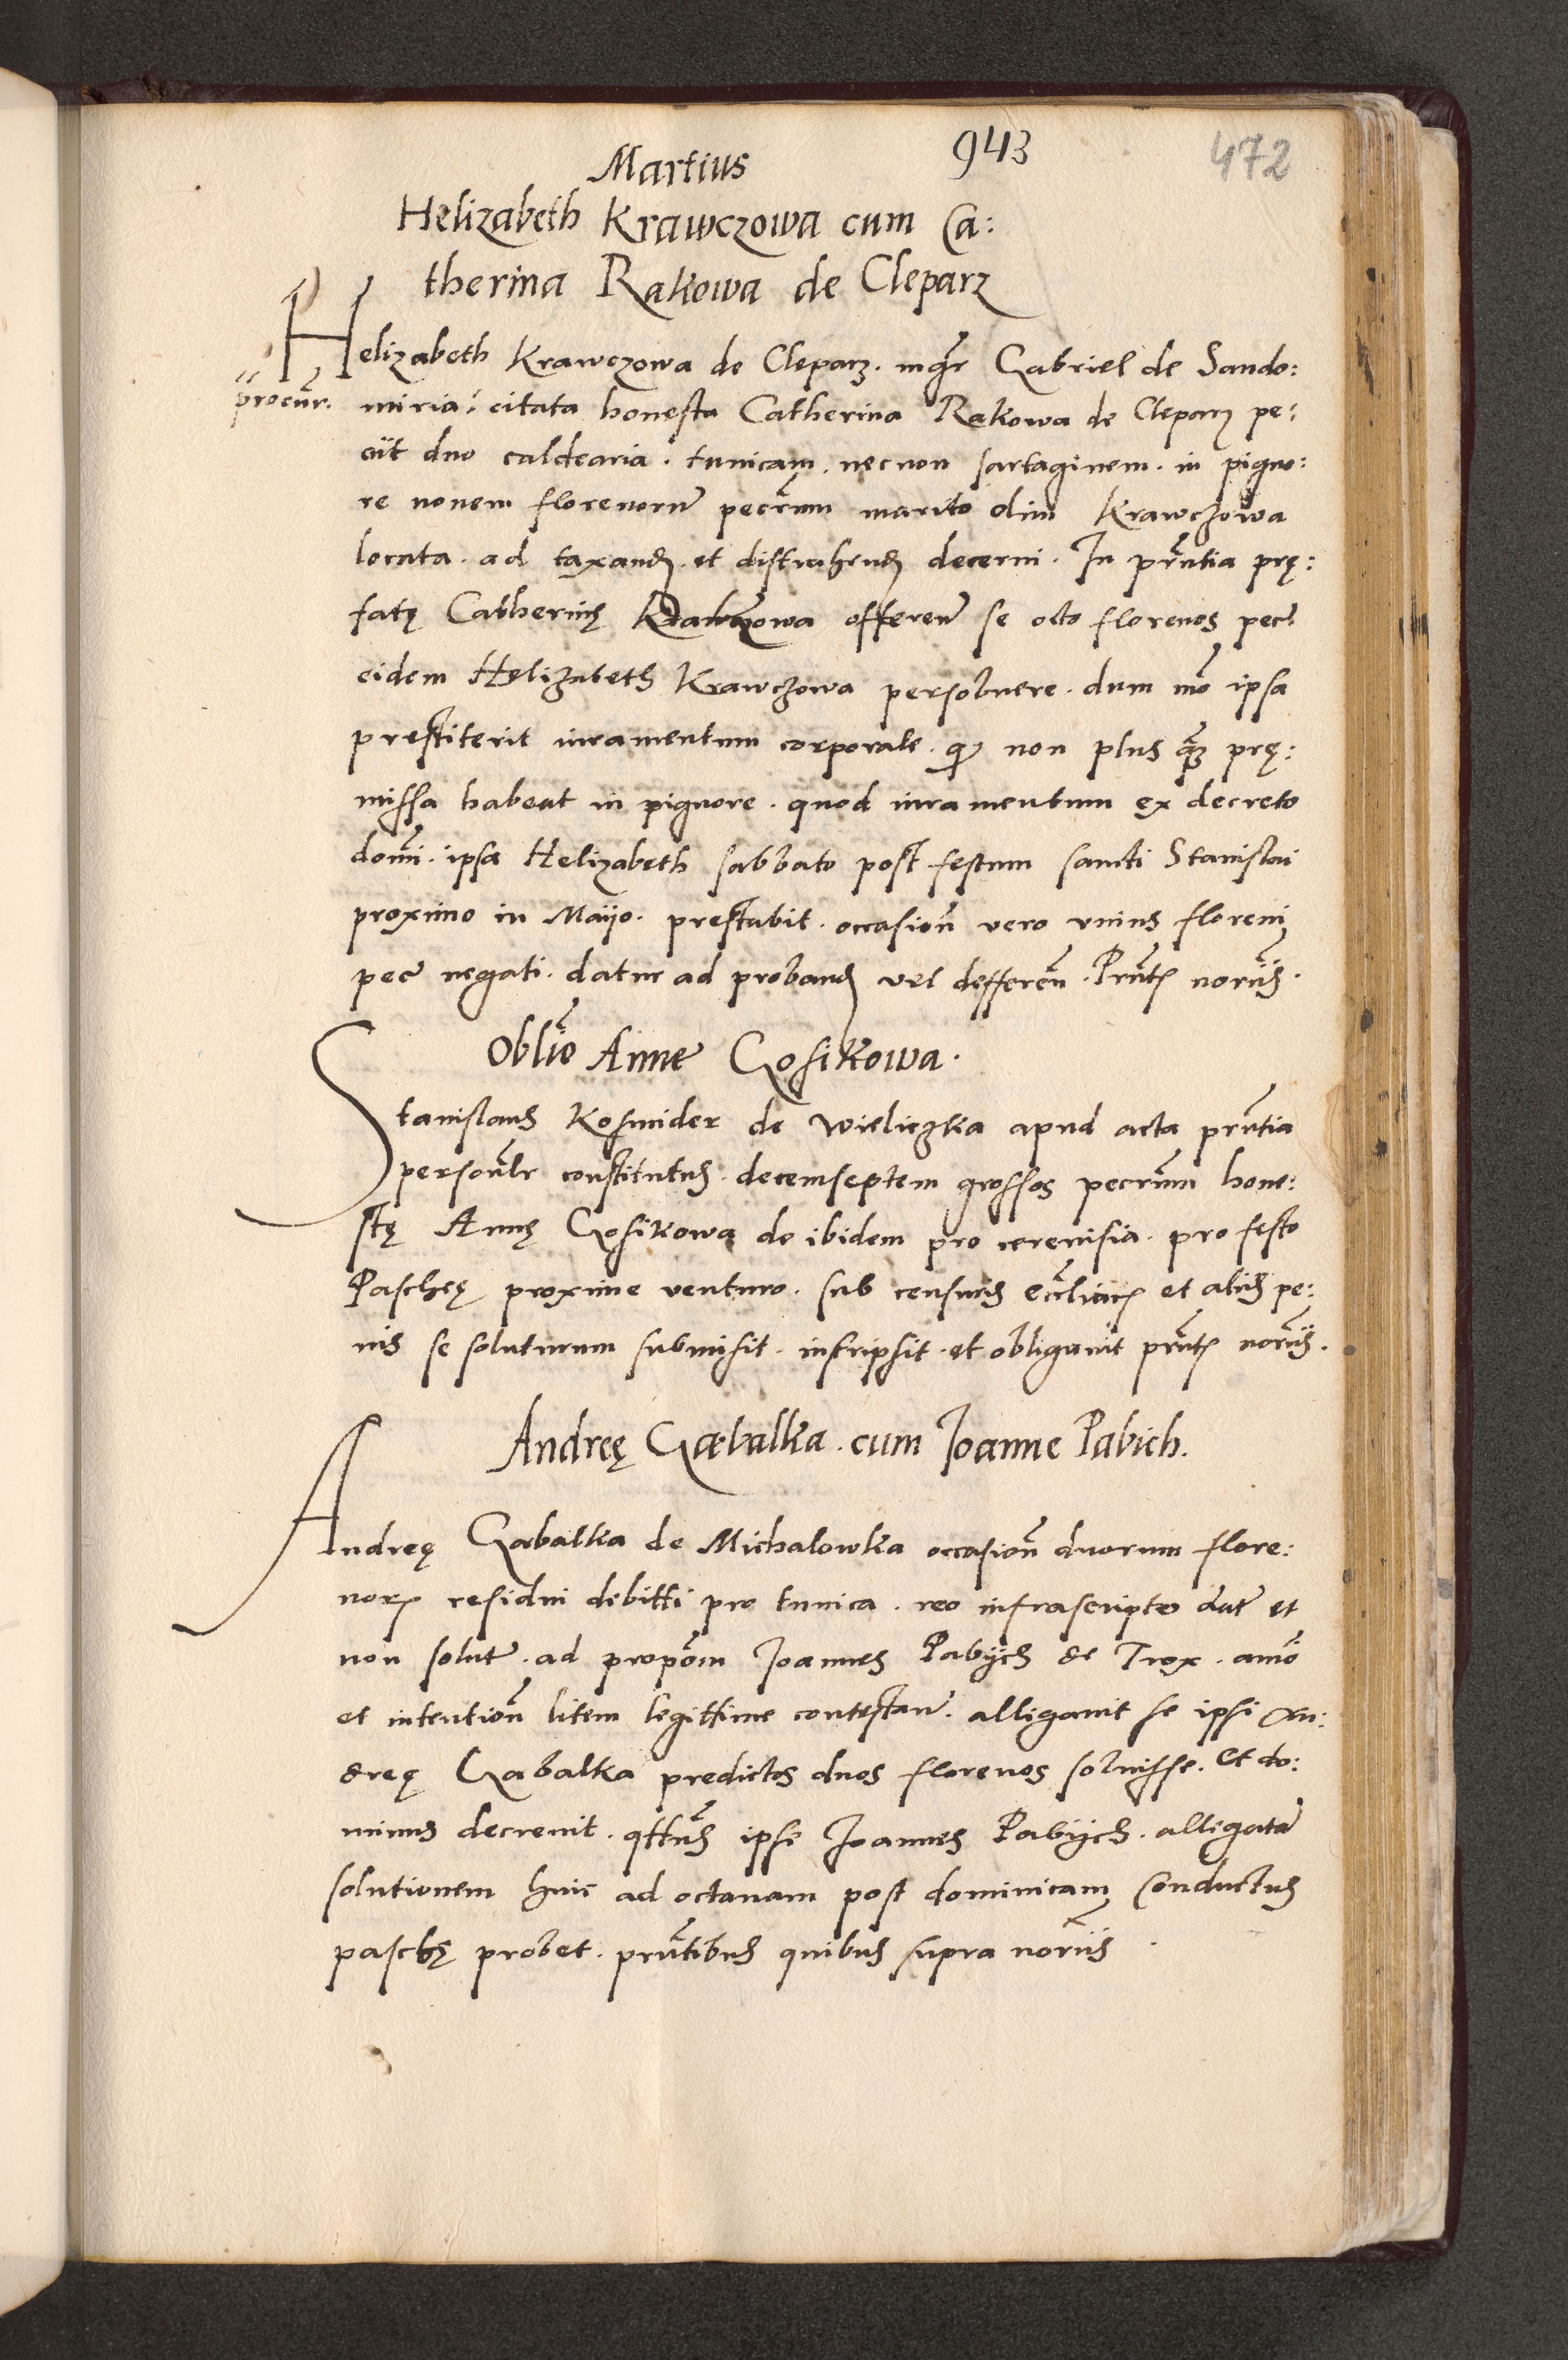 943
472
Martius
Helizabeth Krawczowa cum Ca:
therina Rakowa de Cleparz
Helizabeth Krawczowa de Cleparz. mgr̄ Gabriel de Sando:
procur̄. miria: citata honesta Catherina Rakowa de Cleparz pe:
ciit duo caldearia. tunicam. necnon sartaginem. in pigno:
re nouem florenorū pecr̄um marito olim Krawczowa
locata. ad taxandꝫ. et distrahendꝫ decerni. In prn̄tia prę:
fatę Catherinę offerenꝰ se octo florenos pecꝰ
eidem Helizabeth Krawczowa persoluere. dum mō ipsa
prestiterit iuramentum corporale. qꝫ non plus qꝫ prę:
missa habeat in pignore. quod iuramentum ex decreto
domī. ipsa Helizabeth sabbato post festum sancti Stanislai
proximo in Maijo. prestabit. occasioñ vero vnius floreni
pecꝰ negati. datur ad probandꝫ vel defferen̄. Prn̄tꝫ noriis.
Obliō Anne Gosikowa.
Stanislaus Kosmider de Wieliczka apud acta prn̄tia
personlr̄ constitutus. decemseptem grossos pecrn̄um hone:
stę Annę Gosikowa de ibidem pro cereuisia. pro festo
Paschę proxime venturo. sub censuris eccl̄iarꝫ et aliis pe:
nis se soluturum submisit. inscripsit. et obligauit prn̄tꝫ noriis.
Andreę Gabalka. cum Joanne Pabich.
Andreę Gabalka de Michalowka occasioñ duorum flore:
norꝫ residui debitti pro tunica. reo infrascripto datꝰ et
non solutꝰ. ad propōm Joannes Pabijch de Trox. animō
et intentioñ litem legittime contestanꝰ. alligauit se ipsi An:
dreę Gabalka predictos duos florenos soluisse. Et do:
minus decreuit. qttus̄ ipse Joannes Pabijch. alligatā
solutionem hinc ad octauam post dominicam Conductus
paschę probet. prn̄tibus quibus supra noriis.